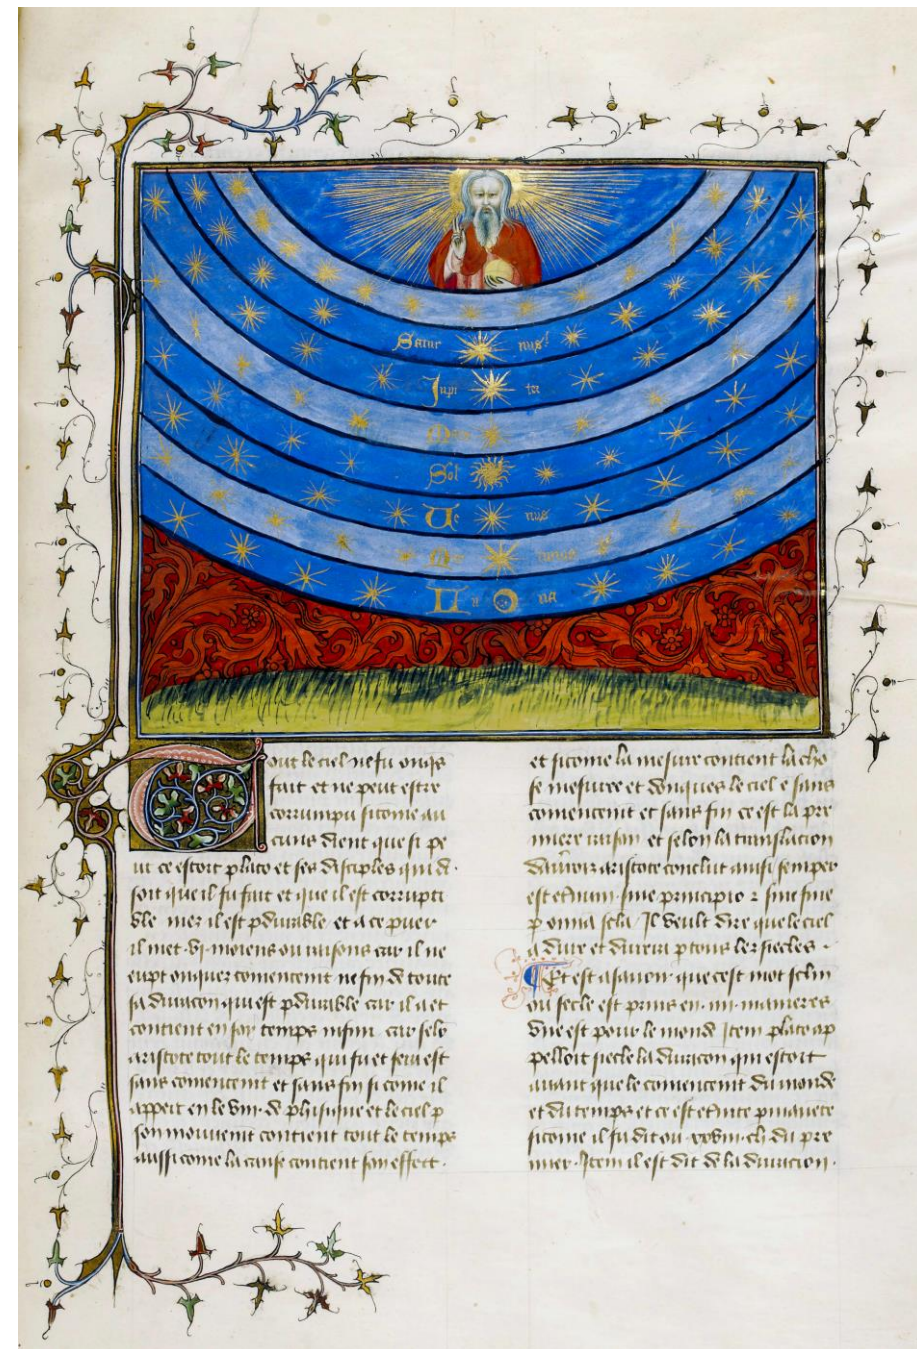 Satur nus
Jupi ter
Mars
Sol
Ve nus
Mer curius
Lu na
Tout le ciel ne fu onq̃s
fait et ne peut estre
corrumpu sicome au
cuns dient que si pe
ut ce estoit plato et ses disciples qui di
soit que il fu fait et que il est corrupti
ble mez il est pdurable et a ce puer
il met .vj. moiens ou raisons car il ne
eupt onquez comencemt ne fin de toute
sa duracon qui est pdurable car il a et
contient en soy temps infini car selo
aristote tout le temps qui fu et sera est
sans comencemt et sans fin si come il
appert en le viij. de phisique et le ciel p
son mouvemt contient tout le temps
aussi come la cause contient son effect.
et sicome la mesure contient la cho
se mesuree et donques le ciel e sans
comencemt et sans fin ce est la pre
miere raison et selon la translacion
aristote conclut ainsi semper
est etnum sine principio ⁊ sine fine
p omia scla Il veult dire que le ciel
a dure et durera p tous lez siecles.
Et est a savoir que cest mot sclm
ou secle est prins en .iiij. manieres
Une est pour le monde Item plato ap
pelloit siecle la duracon qui estoit
avant que le comencemt du monde
et du temps et ce est etnite
sicome il fu dit ou xxviij. ch. du pre
mier. Item il est dit de la duracion.